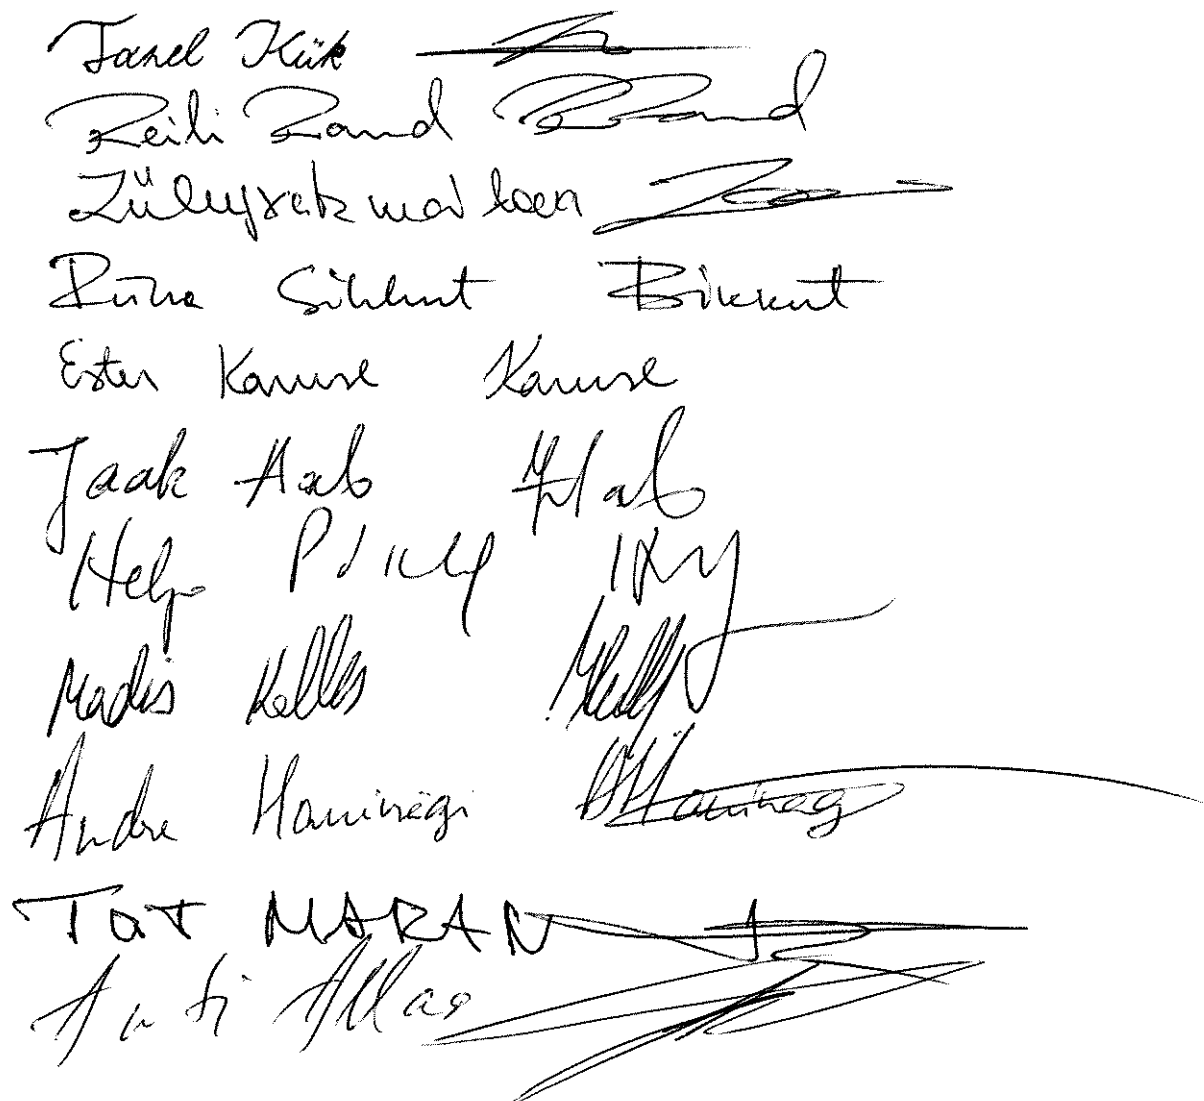 Tanel Kiik
Reili Rand RRand
Züleyxa Izmailova
Riina Sikkut RSikkut
Ester Karuse Karuse
Jaak Aab JAab
Helj
Madis Kallas
Andre Hanimägi AHanimäg
Tiit MARAN
Anti Allas